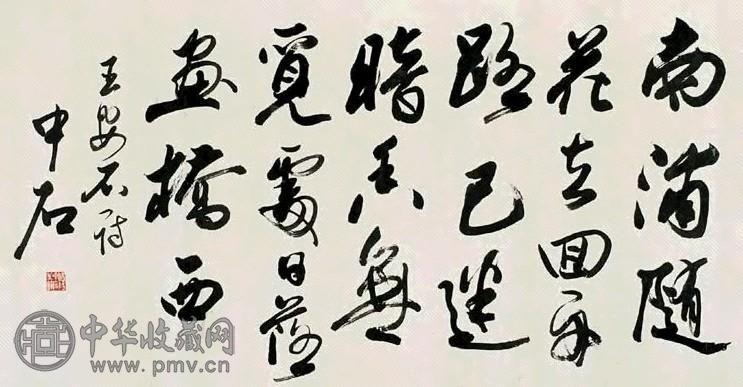 南浦隨
花去回舟
路已迷
暗香無
覓處日落
畫橋西
王安石詩
中石
中华收藏网
www.pmv.cn